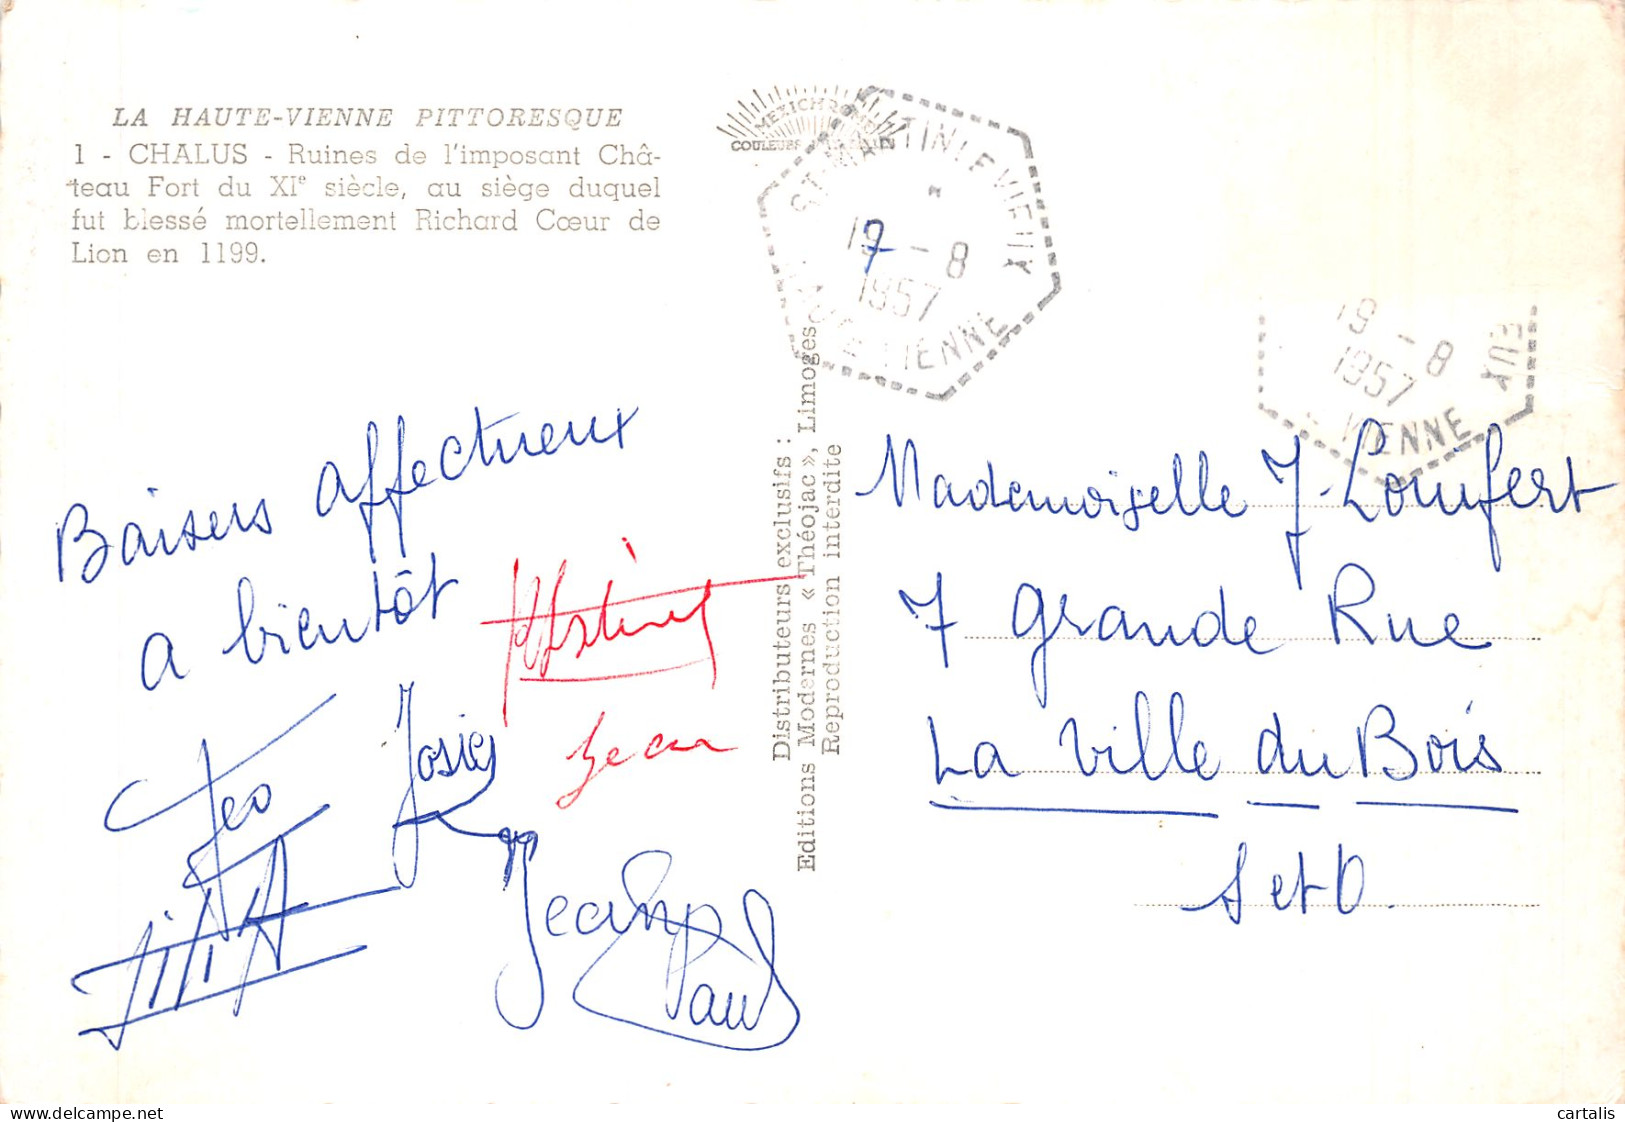 LA HAUTE-VIENNE PITTORESQUE
1 - CHALUS - Ruines de l'imposant Châ-
teau Fort du XIe siècle, au siège duquel
fut blessé mortellement Richard Cœur de
Lion en 1199.
MEZICHROME
COULEURS
ST MARTIN LE VIEUX
19 - 8
7
1957
VIENNE
19 - 8
1957
EUX
VIENNE
Baisers affectueux
a bientôt
Josie
Jean
Jean
Paul
Distributeurs exclusifs :
Editions Modernes « Théojac », Limoges
Reproduction interdite
Mademoiselle J. Loufert
7 grande Rue
La Ville du Bois
S et O.
cartalis